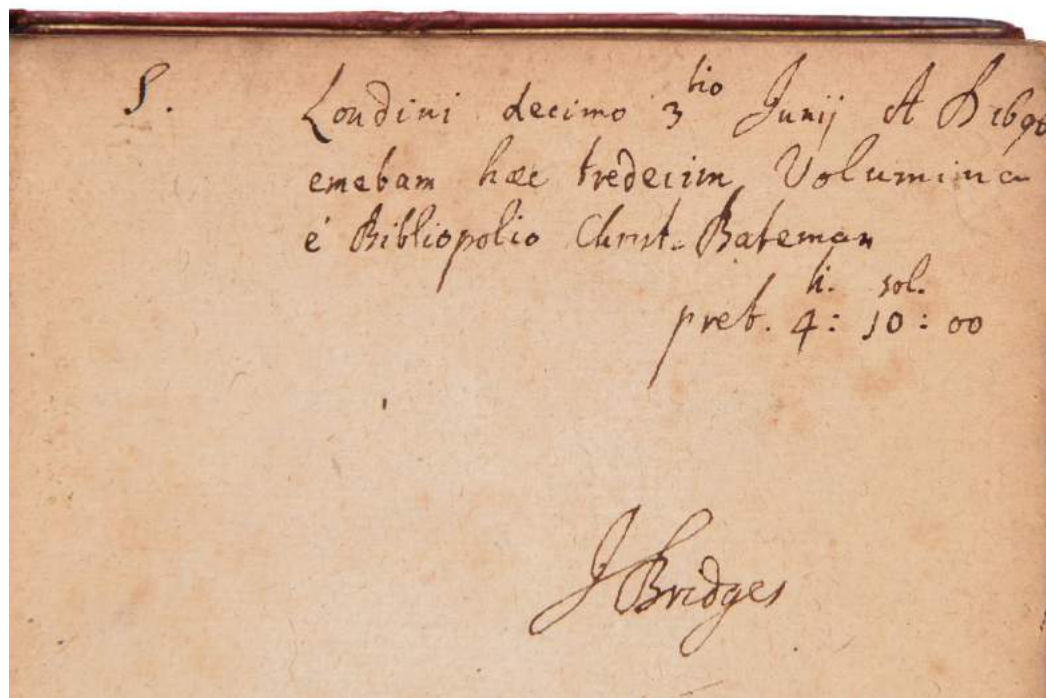 S. Londini decimo 3tio Junij A D 1698
emebam hæc tredecim Volumina
é Bibliopolio Christ. Bateman
li. sol.
pret. 4: 10: 00
J Bridges